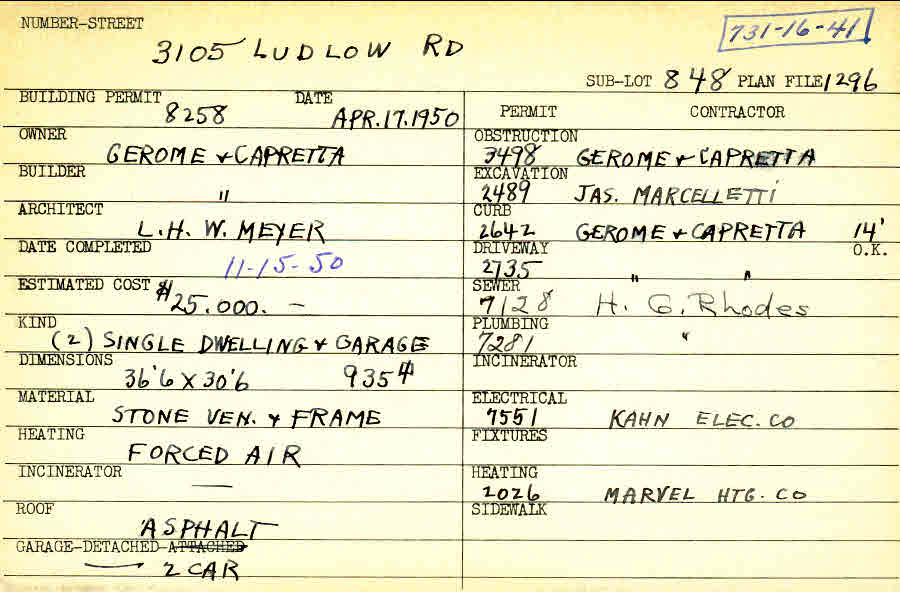 NUMBER-STREET
731-16-41
3105 LUDLOW RD
SUB-LOT 848 PLAN FILE 1296
BUILDING PERMIT DATE
8258 APR. 17. 1950
PERMIT CONTRACTOR
OWNER
GEROME & CAPRETTA
OBSTRUCTION
3498 GEROME & CAPRETTA
BUILDER
"
EXCAVATION
2489 JAS. MARCELLETTI
ARCHITECT
L.H. W. MEYER
CURB
2642 GEROME & CAPRETTA 14'
O.K.
DATE COMPLETED
11-15-50
DRIVEWAY
2735 " "
ESTIMATED COST
$25.000. —
SEWER
7128 H. G. Rhodes
KIND
(2) SINGLE DWELLING & GARAGE
PLUMBING
7281 "
DIMENSIONS
36'6 X 30'6 935#
INCINERATOR
MATERIAL
STONE VEN. & FRAME
ELECTRICAL
7551 KAHN ELEC. CO
HEATING
FORCED AIR
FIXTURES
INCINERATOR
—
HEATING
2026 MARVEL HTG. CO
ROOF
ASPHALT
SIDEWALK
GARAGE-DETACHED-ATTACHED
2 CAR